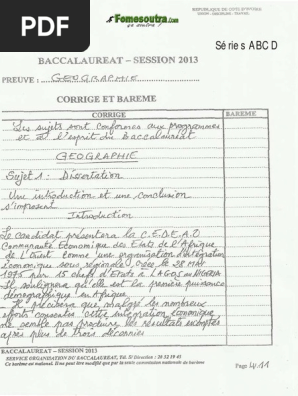 PDF
Fomesoutra.com
ça soutra !
REPUBLIQUE DE COTE D'IVOIRE
Séries ABCD
BACCALAUREAT – SESSION 2013
PREUVE : GEOGRAPHIE
CORRIGE ET BAREME
CORRIGE BAREME
Les sujets sont conformes aux programmes
et à l'esprit du Baccalauréat
GEOGRAPHIE
Sujet 1 : Dissertation
Une introduction et une conclusion
s'imposent
Introduction
Le candidat présentera la C.E.D.E.A.O
Communauté Economique des Etats de l'Afrique
de L'Ouest comme une organisation d'intégration
économique sous régionale créée le 28 MAI
1975 par 15 chefs d'Etats à LAGOS au NIGERIA
Il soulignera qu'elle est la première puissance
démographique en Afrique
Il précisera que malgré les nombreux
efforts consentis cette intégration économique
ne semble pas produire les résultats escomptés
après plus de trois décennies
BACCALAUREAT – SESSION 2013
SERVICE ORGANISATION DU BACCALAUREAT, Tél. D/ Direction : 20 32 19 41
Ce barème est national. Il ne peut être modifié que par la commission nationale de barème
Page 4/11